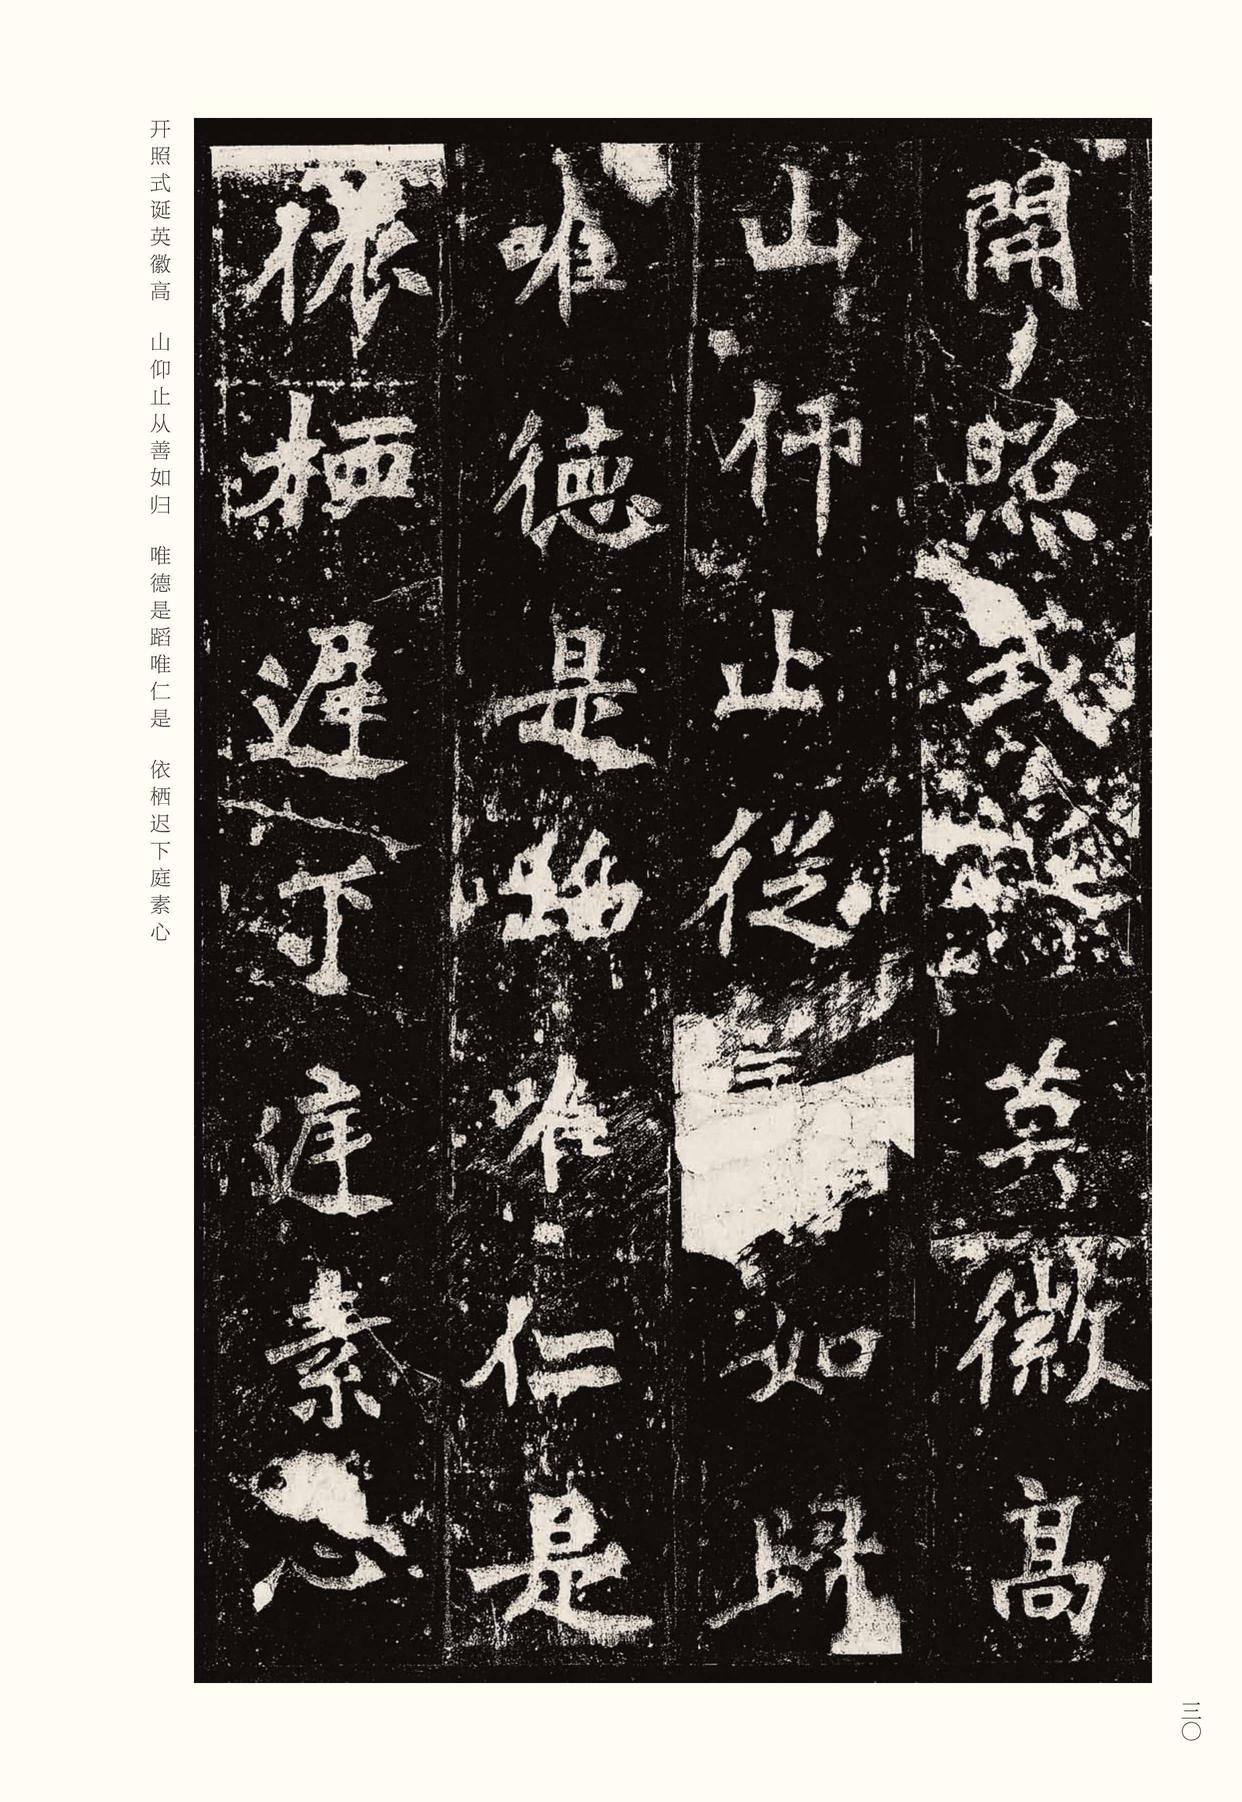 開照式誕英徽高
山仰止從善如歸
唯德是蹈唯仁是
依栖遲下庭素心
开照式诞英徽高　山仰止从善如归　唯德是蹈唯仁是　依栖迟下庭素心
三〇